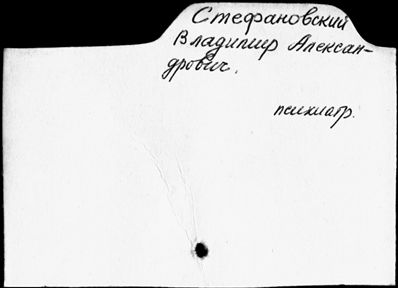 Стефановский
Владимир Алексан-
дрович.
психиатр.